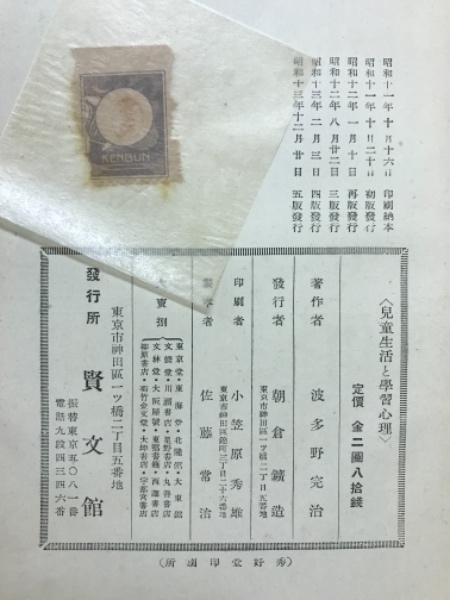 昭和十一年十月十六日 印刷納本
昭和十一年十月二十日 初版發行
昭和十二年一月十日 再版發行
昭和十二年八月廿二日 三版發行
昭和十三年二月三日 四版發行
昭和十三年十二月廿日 五版發行
KENBUN
〈兒童生活と學習心理〉
定價 金二圓八拾錢
著作者 波多野完治
發行者 朝倉鑛造
東京市神田區一ツ橋二丁目五番地
印刷者 小笠原秀雄
東京市神田區錦町三丁目二十六番地
者 佐藤常治
賣捌
東京堂・東海堂・北隆館・大東館
發行所 賢文館
東京市神田區一ツ橋二丁目五番地
振替東京五〇八一番
電話九段四三四六番
(秀好堂印刷所)